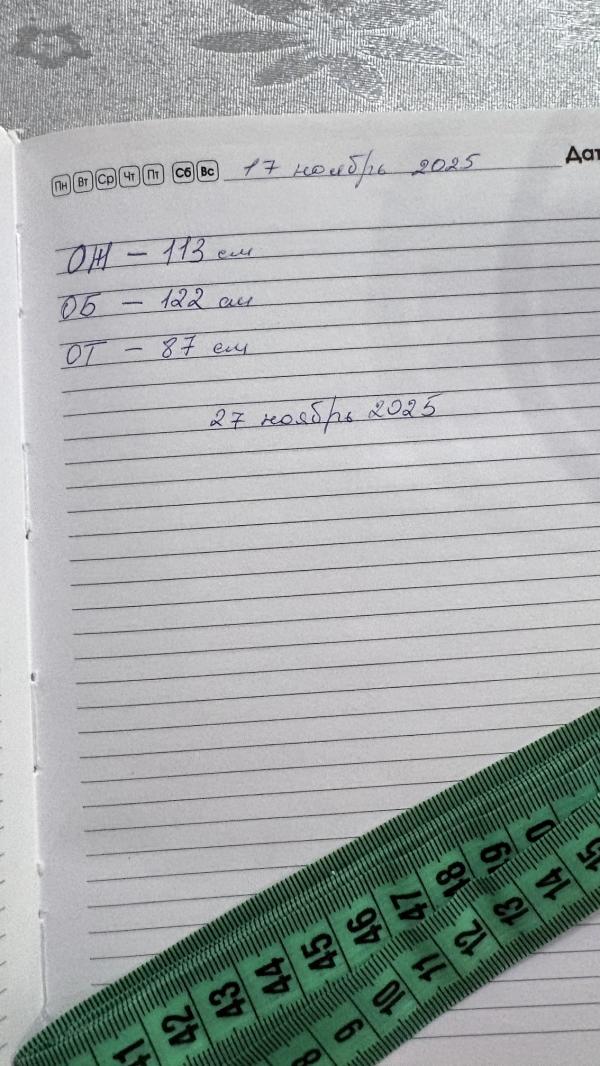 Пн Вт Ср Чт Пт Сб Вс 17 ноябрь 2025 Дат
ОЖ – 113 см
ОБ – 122 см
ОТ – 87 см
27 ноябрь 2025
41 42 43 44 45 46 47 48 49 0
8 9 10 11 12 13 14 15